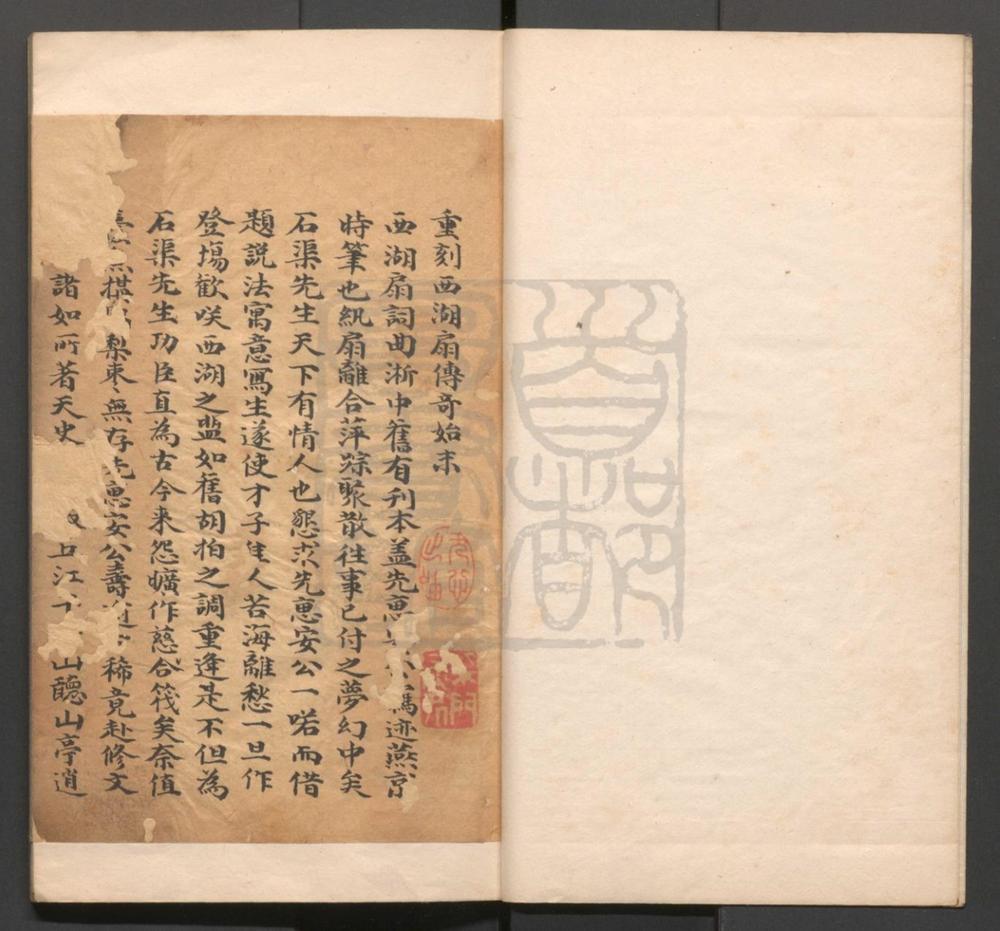 重刻西湖扇傳奇始末
西湖扇詞曲淅中舊有刊本盖先惠寓迹燕京
時筆也紈扇離合萍踪聚散往事已付之夢幻中矣
石渠先生天下有情人也懇求先惠安公一喏而借
題說法寓意寫生遂使才子佳人苦海離愁一旦作
登塲歡咲西湖之盟如舊胡拍之調重逢是不但為
石渠先生功臣直為古今来怨曠作慈合筏矣奈值
棋梨棗無存先惠安公壽稀竟赴修文
諸如所著天史江山聽山亭逍